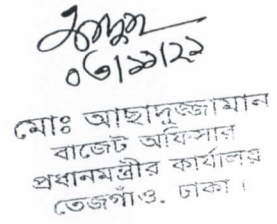 ০৩/১১/২১
মোঃ আছাদুজ্জামান
বাজেট অফিসার
প্রধানমন্ত্রীর কার্যালয়
তেজগাঁও, ঢাকা।